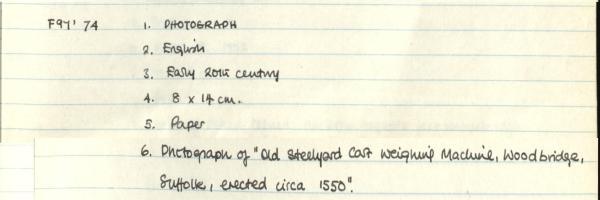 F97' 74 1. PHOTOGRAPH
2. English
3. Early 20th century
4. 8 x 14 cm.
5. Paper
6. Photograph of "Old Steelyard Cart Weighing Machine, Woodbridge,
Suffolk, erected circa 1550".